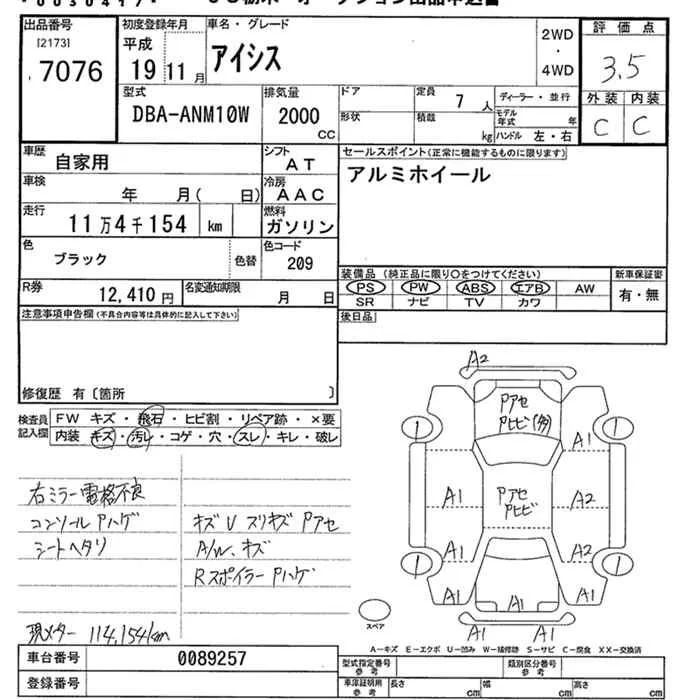 出品番号
[2173]
7076
初度登録年月
平成
19 11月
車名・グレード
アイシス
2WD
・
4WD
評価点
3.5
外装 内装
C C
型式
DBA-ANM10W
排気量
2000
CC
ドア
形状
定員
7 人
積載
kg
ディーラー・並行
モデル年式 年
ハンドル 左・右
車歴
自家用
シフト
AT
車検
年 月( 日)
冷房
AAC
走行
11万4千154 km
燃料
ガソリン
色
ブラック
色替
色コード
209
R券
12,410円
名変通知期限
月 日
セールスポイント(正常に機能するものに限ります)
アルミホイール
装備品(純正品に限り○をつけてください)
PS PW ABS エアB AW
SR ナビ TV カワ
新車保証書
有・無
後日品
注意事項申告欄(不具合内容等は具体的に記入して下さい)
修復歴 有〔箇所 〕
検査員
記入欄
FW キズ・飛石・ヒビ割・リペア跡・×要
内装 キズ・汚レ・コゲ・穴・スレ・キレ・破レ
右ミラー電格不良
コンソールPハゲ
シートヘタリ
キズ U スリキズ Pアセ
A/W、キズ
Rスポイラー Pハゲ
現メーター 114,154km
A2
Pアセ
Pヒビ(多)
1 1
A1
A1
Pアセ
Pヒビ
A2
A1 A2
1 1
A1 A1 A1
A1 A1
スペア
A-キズ E-エクボ U-凹み W-補修跡 S-サビ C-腐食 XX-交換済
車台番号
0089257
登録番号
型式指定番号
参考
類別区分番号
参考
車庫証明用
参考
長さ cm 幅 cm 高さ cm